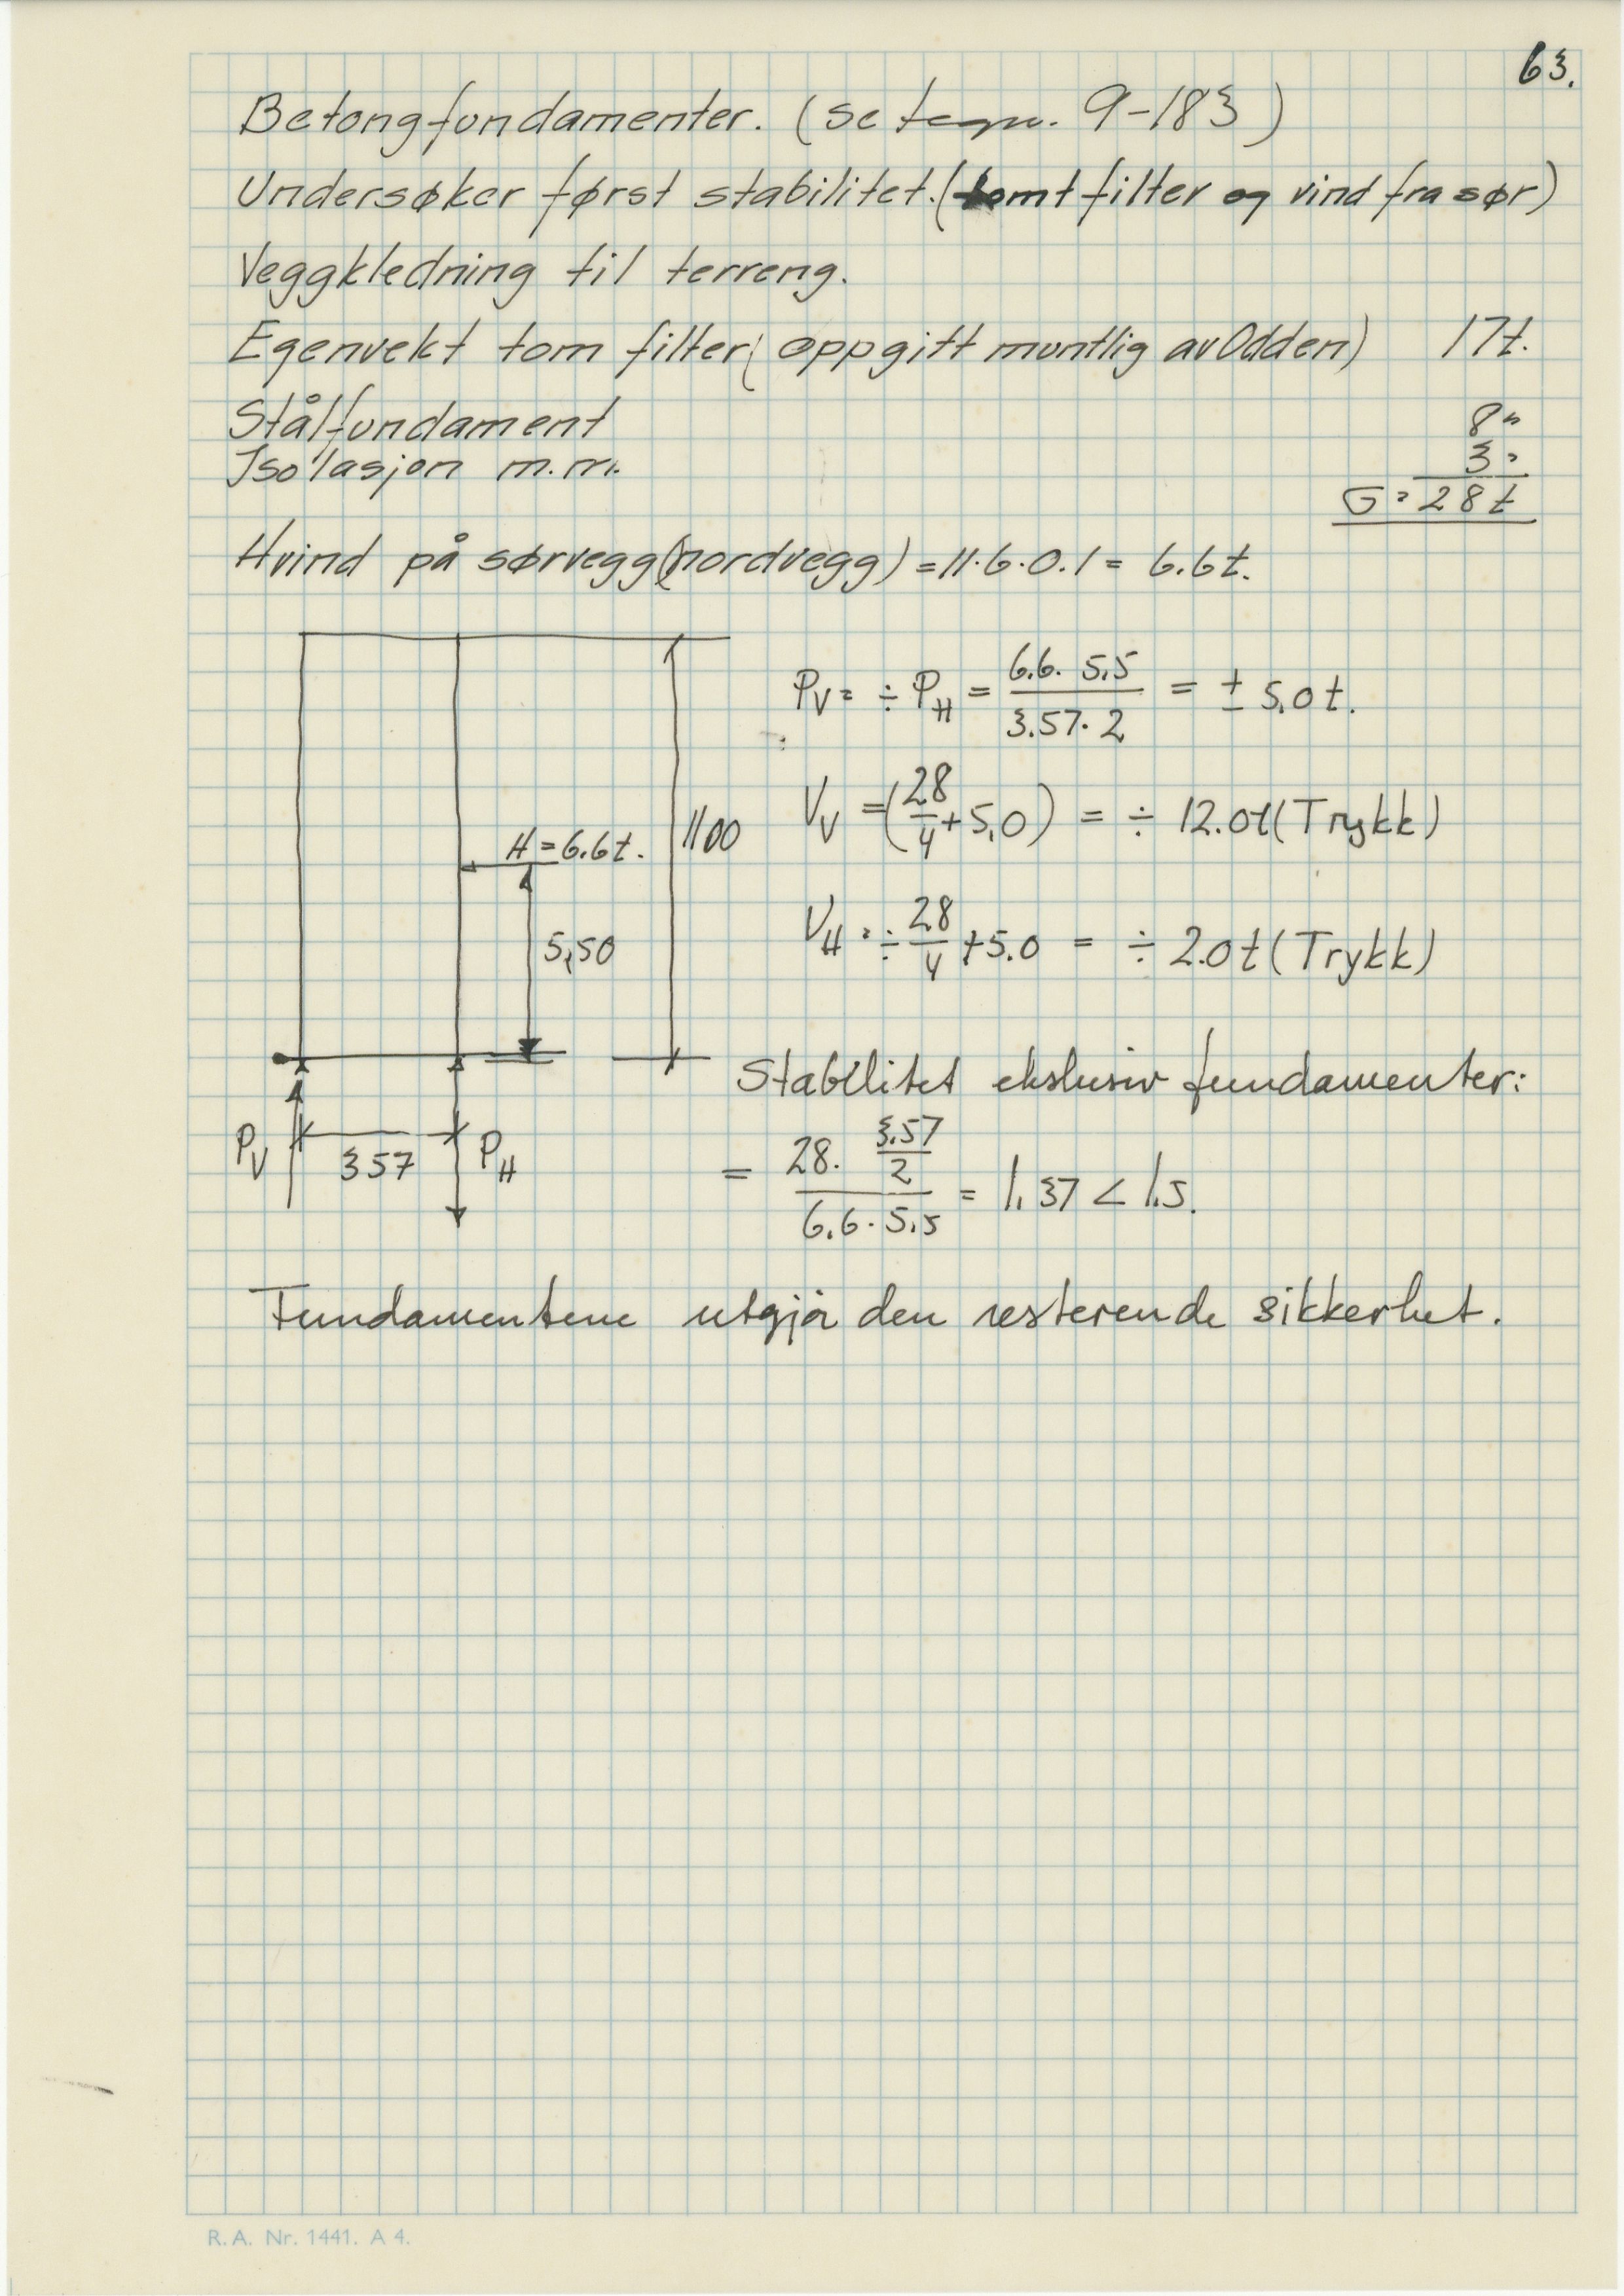 63.
Betongfundamenter. (se tegn. 9-183)
Undersøker først stabilitet. (tomt filter og vind fra sør)
Veggkledning til terreng.
Egenvekt tom filter (oppgitt muntlig av Odden) 17t.
Stålfundament 8"
Isolasjon m.m. 3"
G = 28t
Hvind på sørvegg (nordvegg) = 11·6·0.1 = 6.6t.
PV = ÷ PH = 6.6 · 5,5 / 3.57 · 2 = ± 5,0t.
VV = (28/4 + 5,0) = ÷ 12.0t (Trykk)
H = 6.6t. 1100
VH = ÷ 28/4 + 5.0 = ÷ 2.0t (Trykk)
5,50
Stabilitet ekslusiv fundamenter:
PV 357 PH
= 28 · 3.57/2 / 6.6 · 5,5 = 1,37 < 1,5.
Fundamentene utgjør den resterende sikkerhet.
R.A. Nr. 1441. A 4.